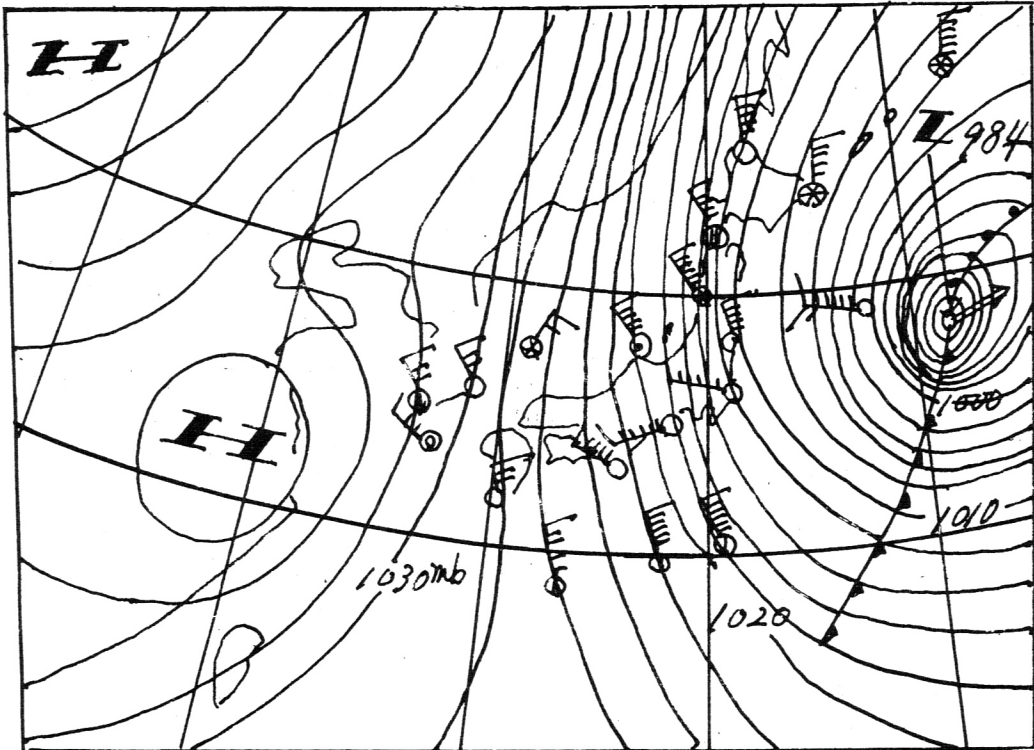 H
L 984
H
1000
1010
1030mb
1020